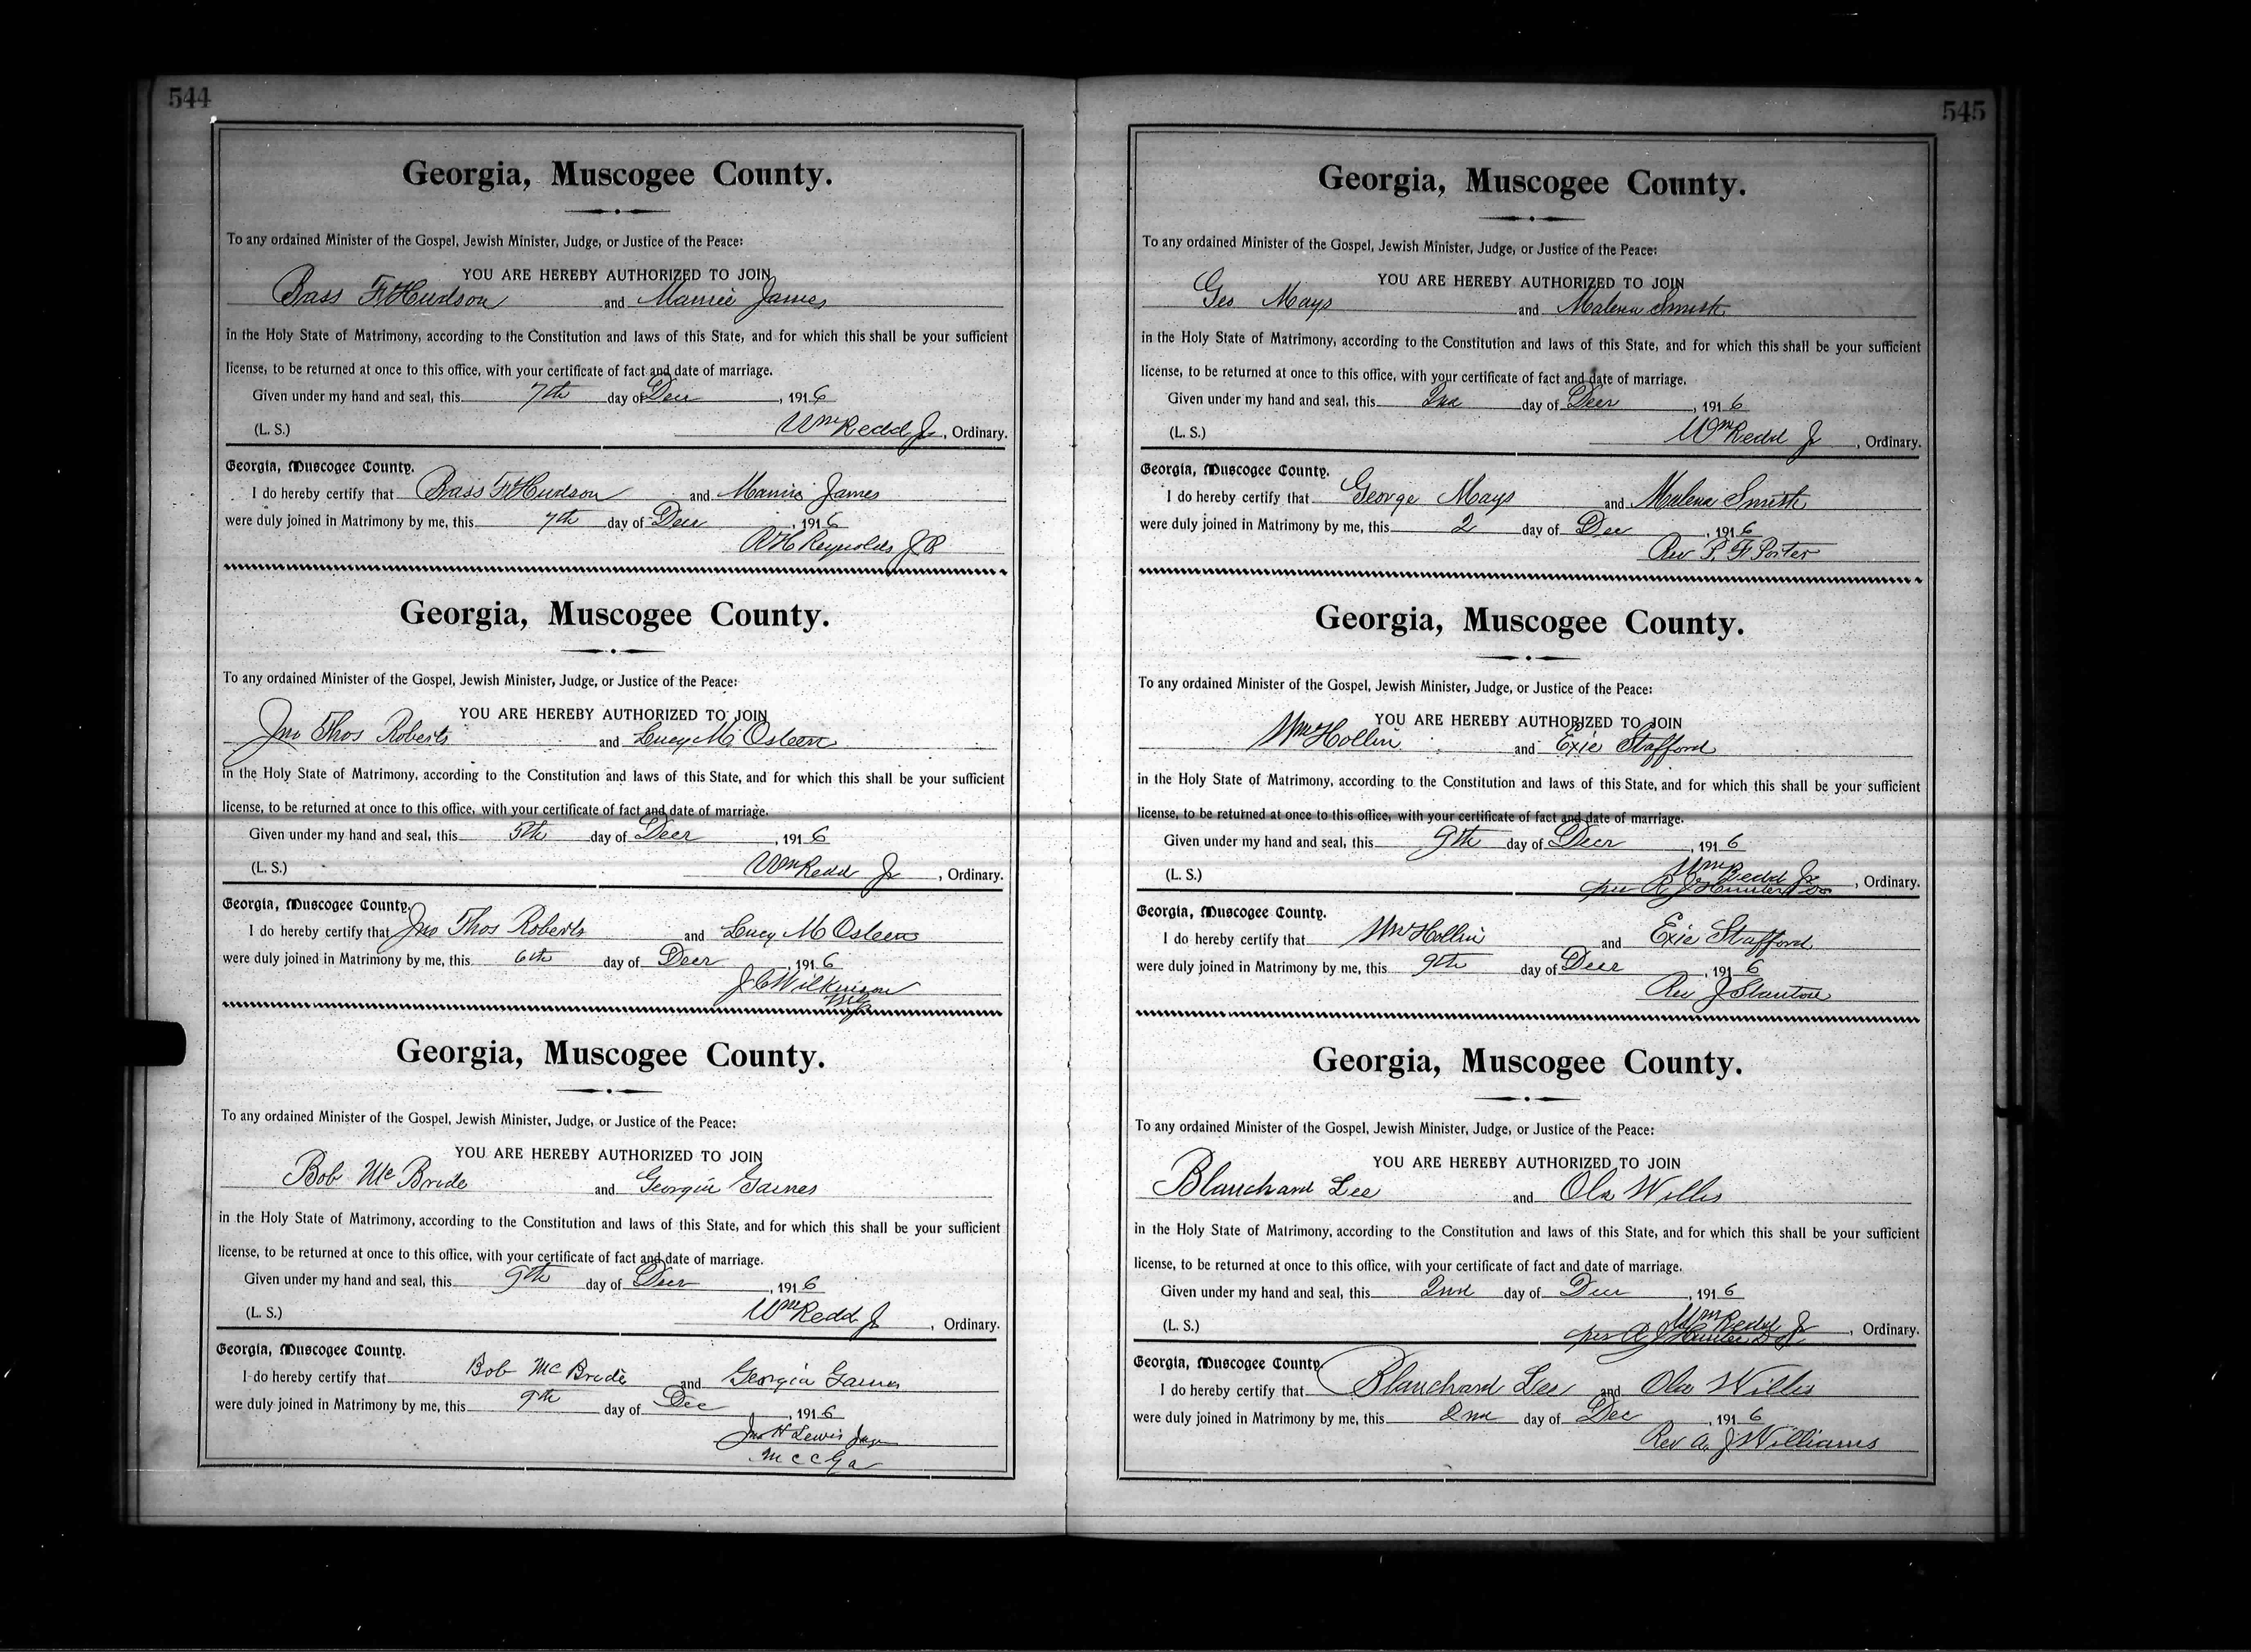 544
Georgia, Muscogee County.
To any ordained Minister of the Gospel, Jewish Minister, Judge, or Justice of the Peace:
YOU ARE HEREBY AUTHORIZED TO JOIN
Bass F Hudson and Mamie James
in the Holy State of Matrimony, according to the Constitution and laws of this State, and for which this shall be your sufficient
license, to be returned at once to this office, with your certificate of fact and date of marriage.
Given under my hand and seal, this 7th day of Decr, 1916
(L. S.) Wm Redd Jr, Ordinary.
Georgia, Muscogee County.
I do hereby certify that Bass F Hudson and Mamie James
were duly joined in Matrimony by me, this 7th day of Decr, 1916
R H Reynolds J P
Georgia, Muscogee County.
To any ordained Minister of the Gospel, Jewish Minister, Judge, or Justice of the Peace:
YOU ARE HEREBY AUTHORIZED TO JOIN
Jno Thos Roberts and Lucy M Osteen
in the Holy State of Matrimony, according to the Constitution and laws of this State, and for which this shall be your sufficient
license, to be returned at once to this office, with your certificate of fact and date of marriage.
Given under my hand and seal, this 5th day of Decr, 1916
(L. S.) Wm Redd Jr, Ordinary.
Georgia, Muscogee County.
I do hereby certify that Jno Thos Roberts and Lucy M Osteen
were duly joined in Matrimony by me, this 6th day of Decr, 1916
J C Wilkinson
Georgia, Muscogee County.
To any ordained Minister of the Gospel, Jewish Minister, Judge, or Justice of the Peace:
YOU ARE HEREBY AUTHORIZED TO JOIN
Bob McBride and Georgia Gaines
in the Holy State of Matrimony, according to the Constitution and laws of this State, and for which this shall be your sufficient
license, to be returned at once to this office, with your certificate of fact and date of marriage.
Given under my hand and seal, this 9th day of Decr, 1916
(L. S.) Wm Redd Jr, Ordinary.
Georgia, Muscogee County.
I do hereby certify that Bob McBride and Georgia Gaines
were duly joined in Matrimony by me, this 9th day of Dec, 1916
Jno H Lewis
M C C Ga
545
Georgia, Muscogee County.
To any ordained Minister of the Gospel, Jewish Minister, Judge, or Justice of the Peace:
YOU ARE HEREBY AUTHORIZED TO JOIN
Geo Mays and Malena Smith
in the Holy State of Matrimony, according to the Constitution and laws of this State, and for which this shall be your sufficient
license, to be returned at once to this office, with your certificate of fact and date of marriage.
Given under my hand and seal, this 2nd day of Decr, 1916
(L. S.) Wm Redd Jr, Ordinary.
Georgia, Muscogee County.
I do hereby certify that George Mays and Malena Smith
were duly joined in Matrimony by me, this 2 day of Dec, 1916
Rev P. F. Porter
Georgia, Muscogee County.
To any ordained Minister of the Gospel, Jewish Minister, Judge, or Justice of the Peace:
YOU ARE HEREBY AUTHORIZED TO JOIN
Wm Hollin and Exie Stafford
in the Holy State of Matrimony, according to the Constitution and laws of this State, and for which this shall be your sufficient
license, to be returned at once to this office, with your certificate of fact and date of marriage.
Given under my hand and seal, this 9th day of Decr, 1916
Wm Redd Jr
(L. S.) per R J Hunter, Ordinary.
Georgia, Muscogee County.
I do hereby certify that Wm Hollin and Exie Stafford
were duly joined in Matrimony by me, this 9th day of Decr, 1916
Rev J Stanton
Georgia, Muscogee County.
To any ordained Minister of the Gospel, Jewish Minister, Judge, or Justice of the Peace:
YOU ARE HEREBY AUTHORIZED TO JOIN
Blanchard Lee and Ola Willis
in the Holy State of Matrimony, according to the Constitution and laws of this State, and for which this shall be your sufficient
license, to be returned at once to this office, with your certificate of fact and date of marriage.
Given under my hand and seal, this 2nd day of Decr, 1916
Wm Redd Jr
(L. S.) per R J Hunter, Ordinary.
Georgia, Muscogee County.
I do hereby certify that Blanchard Lee and Ola Willis
were duly joined in Matrimony by me, this 2nd day of Dec, 1916
Rev A. J Williams